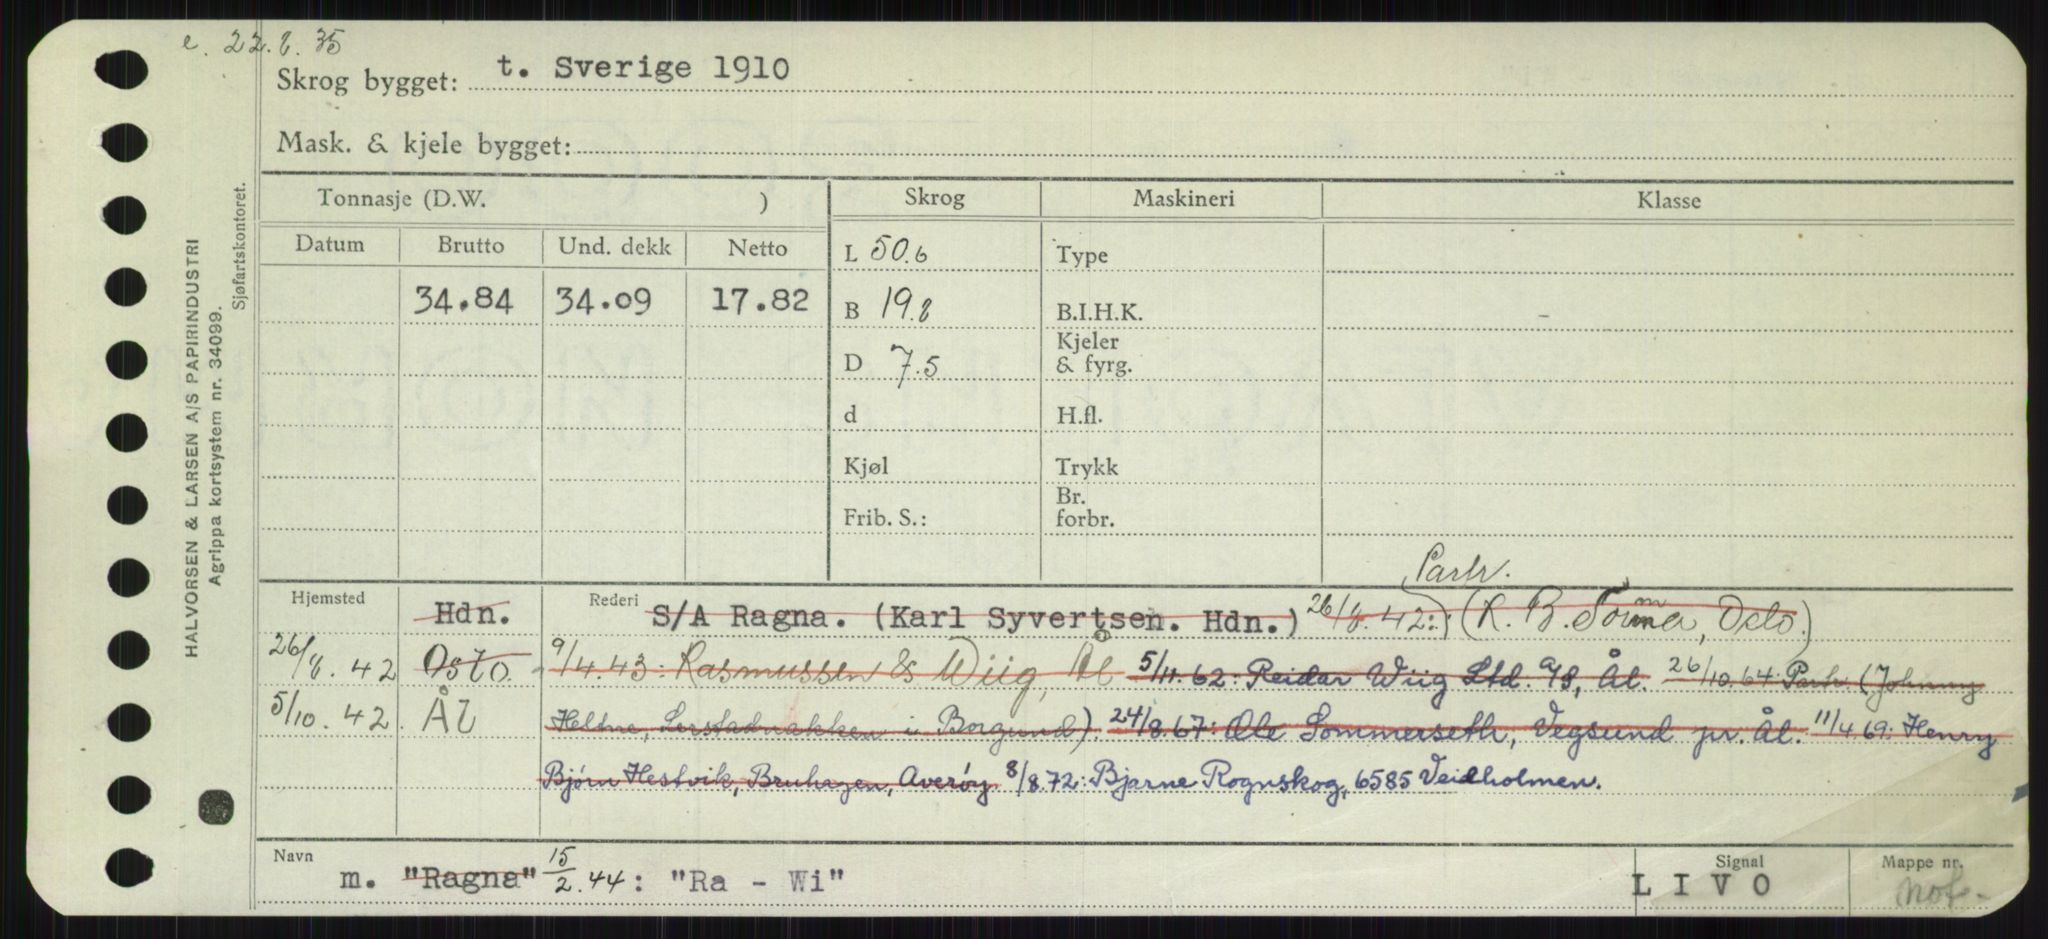 e. 22.8.35
Skrog bygget: t. Sverige 1910
Mask. & kjele bygget:
HALVORSEN & LARSEN A/S PAPIRINDUSTRI
Agrippa kortsystem nr. 34099.
Sjøfartskontoret.
Tonnasje (D.W. ) Skrog Maskineri Klasse
Datum Brutto Und. dekk Netto L 50.6 Type
34.84 34.09 17.82 B 19.8 B.I.H.K.
D 7.5 Kjeler & fyrg.
d H.fl.
Kjøl Trykk
Frib. S.: Br. forbr.
Partr.
Hjemsted Hdn. Rederi S/A Ragna. (Karl Syvertsen. Hdn.) 26/8.42: (R. B. Tomma, Oslo.)
26/8.42 Oslo. 9/4.43: Rasmussen & Wiig, Ål 5/11.62: Reidar Wiig Ltd. A/S, Ål. 26/10.64 Partr. (Johnny
5/10.42. Ål Heltne, Lerstadnakken i Borgund). 24/8.67: Ole Sommerseth, Vegsund pr. Ål. 11/4 69: Henry
Bjørn Hestvik, Bruhagen, Averøy 8/8.72: Bjarne Rognskog, 6585 Veidholmen.
Navn Signal Mappe nr.
m. "Ragna" 15/2.44: "Ra - Wi" L I V O